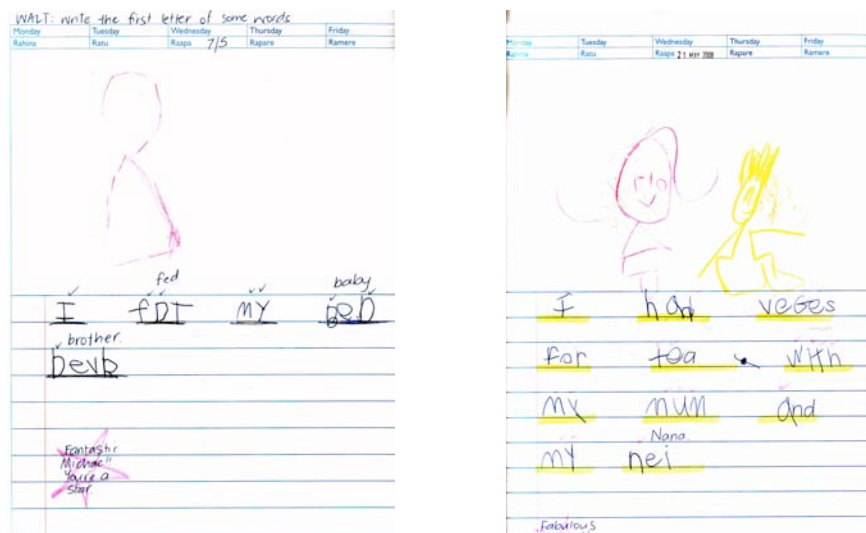 WALT: write the first letter of some words
Monday Tuesday Wednesday Thursday Friday
Rahina Ratu Raapa 7/5 Rapare Ramere
fed baby
I fDT MY BeD
brother
bevb
Fantastic
Michael
You're a
Star.
Monday Tuesday Wednesday Thursday Friday
Rahina Ratu Raapa 21 MAY 2008 Rapare Ramere
I had veGes
for tea with
MY nun and
Nana
MY nei
Fabulous